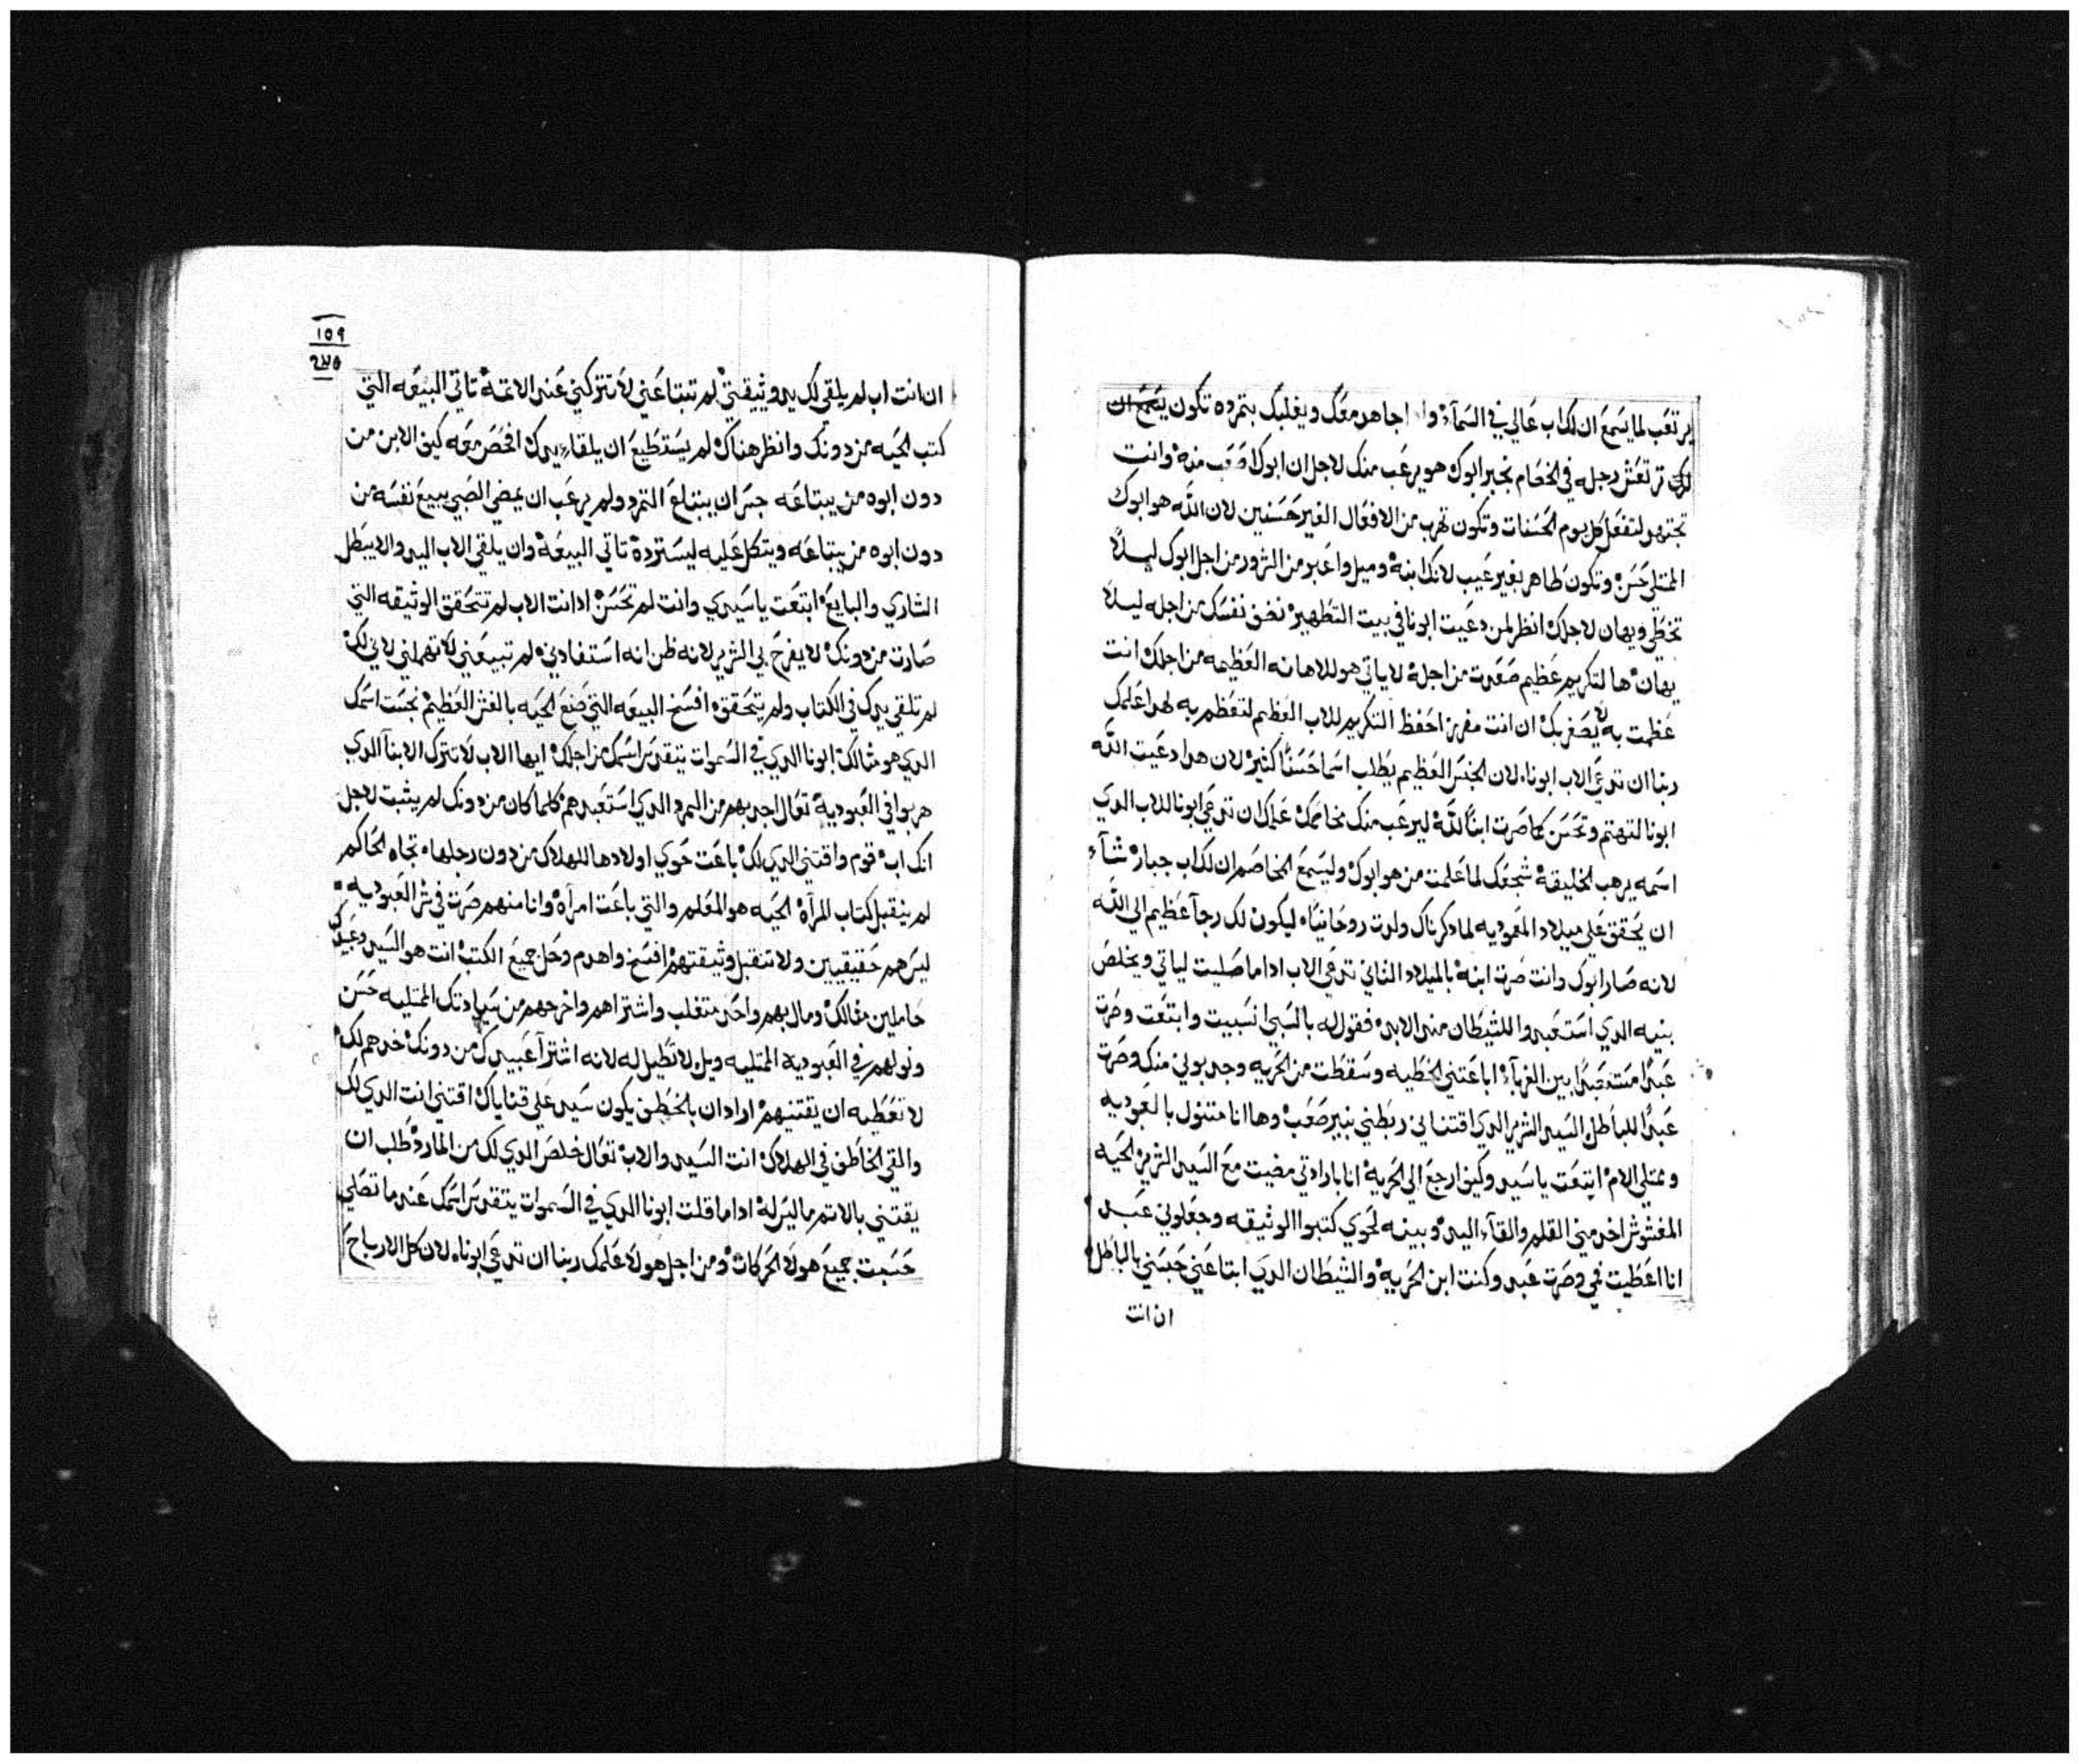 يرتعب لما يسمع ان لك اب عالي في السماء وا اجاهد معك ويغلبك بتمرده تكون يسمع ان
لك ترتعش رجله في الخصام بخبر ابوك هو يرعب منك لاجل ان ابوك صعب منه وانت
تجتهد لتفعل كل يوم الحسنات وتكون تهرب من الافعال الغير حسنين لان الله هو ابوك
الممتلي حسن وتكون طاهر بغير عيب لانك ابنه وميل واعبر من الشرور من اجل ابوك ليلا
تخطي ويهان لاجلك انظر لمن دعيت ابونا في بيت التطهير نضف نفسك من اجله ليلا
يهان ها لتكريم عظيم صعدت من اجله لا ياتي هو للاهانه العظيمه من اجلك انت
عظمت به لا يصغر بك ان انت مفرز احفظ التكريم للاب العظيم لتعظم به لهدا علمك
ربنا ان تدعي الاب ابونا لان الجنس العظيم يطلب اسما حسنا كثير لان هدا دعيت الله
ابونا لتهتم وتحسن كما صرت ابنا لله ليرعب منك مخاصمك علمك ان تدعي ابونا للاب الدي
اسمه يرهب الخليقه شجعك لما علمت من هو ابوك وليسمع المخاصم ان لك اب جبار شاء
ان يحقق علي ميلاد المعموديه لما دكرناك ولدت روحانيا ليكون لك رجآ عظيم الي الله
لانه صار ابوك وانت صرت ابنه بالميلاد الثاني تدعي الاب ادا ما صليت لياتي ويخلص
بنيه الدي استعبدوا للشيطان مند الابد فقول له بالسبي انسبيت وابتعت وصرت
عبدا مستعبدا بين الغرباء اباعتني الخطيه وسقطت من الحريه وجدبوني منك وصرت
عبدا للباطل السيد الشرير الدي اقتناني ربطني بنير صعب وها انا متنول بالعبوديه
وممتلي الام ابتعت يا سيد وكيف ارجع الي الحريه انا بارادتي مضيت مع السيد الشرير الحيه
المغشوش اخد مني القلم والقآء اليد وبينه لحوي كتبوا الوثيقه وجعلوني عبد
انا اعطيت في وصرت عبد وكنت ابن الحريه والشيطان الدي ابتاعني حبسني بالباطل
ان انت
١٥٩
ان انت اب لم يلقي لك يد وثيقتي لم تبتاعني لا تتركني عند الاتمه تاتي البيعه التي
كتب الحيه من دونك وانظر هناك لم يستطيع ان يلقاء يدك افحص معه كيف الابن من
دون ابوه من يبتاعه جسر ان يبتاع التمرد ولم يرعب ان يمضي الصبي يبيع نفسه من
دون ابوه من يبتاعه ويتكل عليه ليسترده تاتي البيعه وان يلقي الاب اليد والا يبطل
الشاري والبايع ابتعت يا سيدي وانت لم تحسن ادا انت الاب لم تتحقق الوثيقه التي
صارت من دونك لا يفرح بي الشرير لانه ظن انه استفادني لم تبيعني لا تهملني لاني لك
لم تلقي يدك في الكتاب ولم يتحقق افسخ البيعه التي صنع الحيه بالغش العظيم نجست اسمك
الدي هو مثالك ابونا الدي في السموات يتقدس اسمك من اجلك ايها الاب لا تترك الابنآ الدي
هربوا في العبوديه تعال اجدبهم من المرد الدي استعبدهم كلما كان من دونك لم يثبت لاجل
انك اب قوم واقتني الدي لك باعت حوي اولادها للهلاك من دون رجلها تجاه الحاكم
لم ينقبل كتاب المرآه الحيه هو المعلم والتي باعت امرآه وانا منهم صرت في شر العبوديه
ليس هم حقيقيين ولا تتقبل وثيقتهم افسخ واهدم وحل جميع الكتب انت هو السيد وعبيدك
حاملين مثالك ومال بهم واحد متغلب واشتراهم واخرجهم من سيادتك الممتليه حسن
ونولهم في العبوديه الممتليه ويل لا تطيل له لانه اشترآ عبيدك من دونك خدهم لك
لا تعطيه ان يقتنيهم اواد ان بالخطف يكون سيد علي قناياك اقتني انت الدي لك
والقي الخاطف في الهلاك انت السيد والاب تعال خلص الدي لك من المارد طلب ان
يقتني بالاتم ما ليس له ادا ما قلت ابونا الدي في السموات يتقدس اسمك عند ما تصلي
حسبت جميع هولا الحركات ومن اجل هولا علمك ربنا ان تدعي ابونا لان كل الارباح